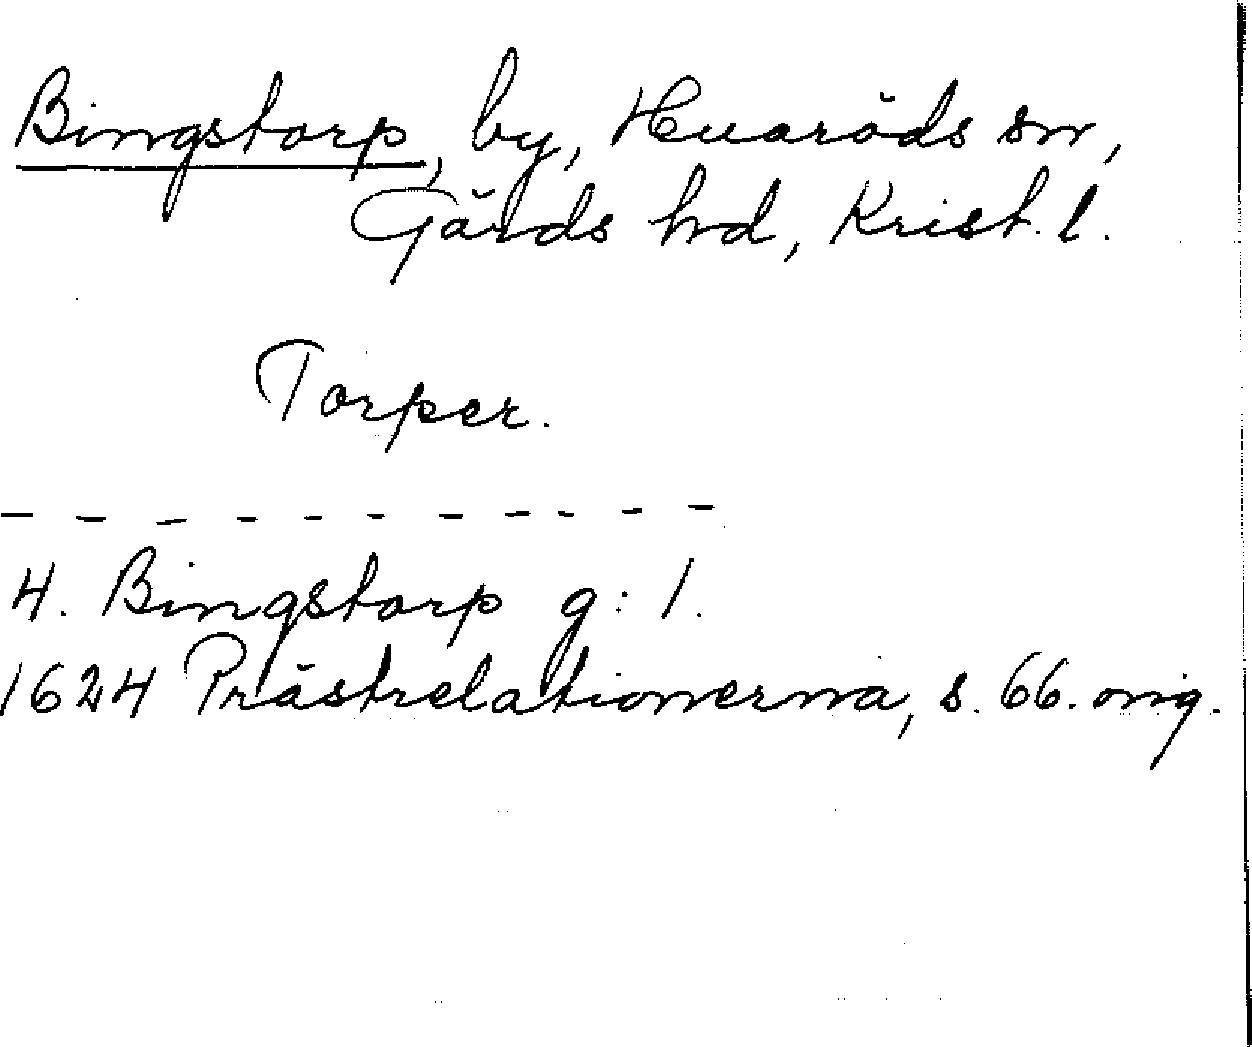 Bingstorp, by, Huaröds sn,
Gärds hd, Krist. l.
Torper.
- - - - - - - - - - -
4. Bingstorp g: 1.
1624 Prästrelationerna, s. 66. orig.